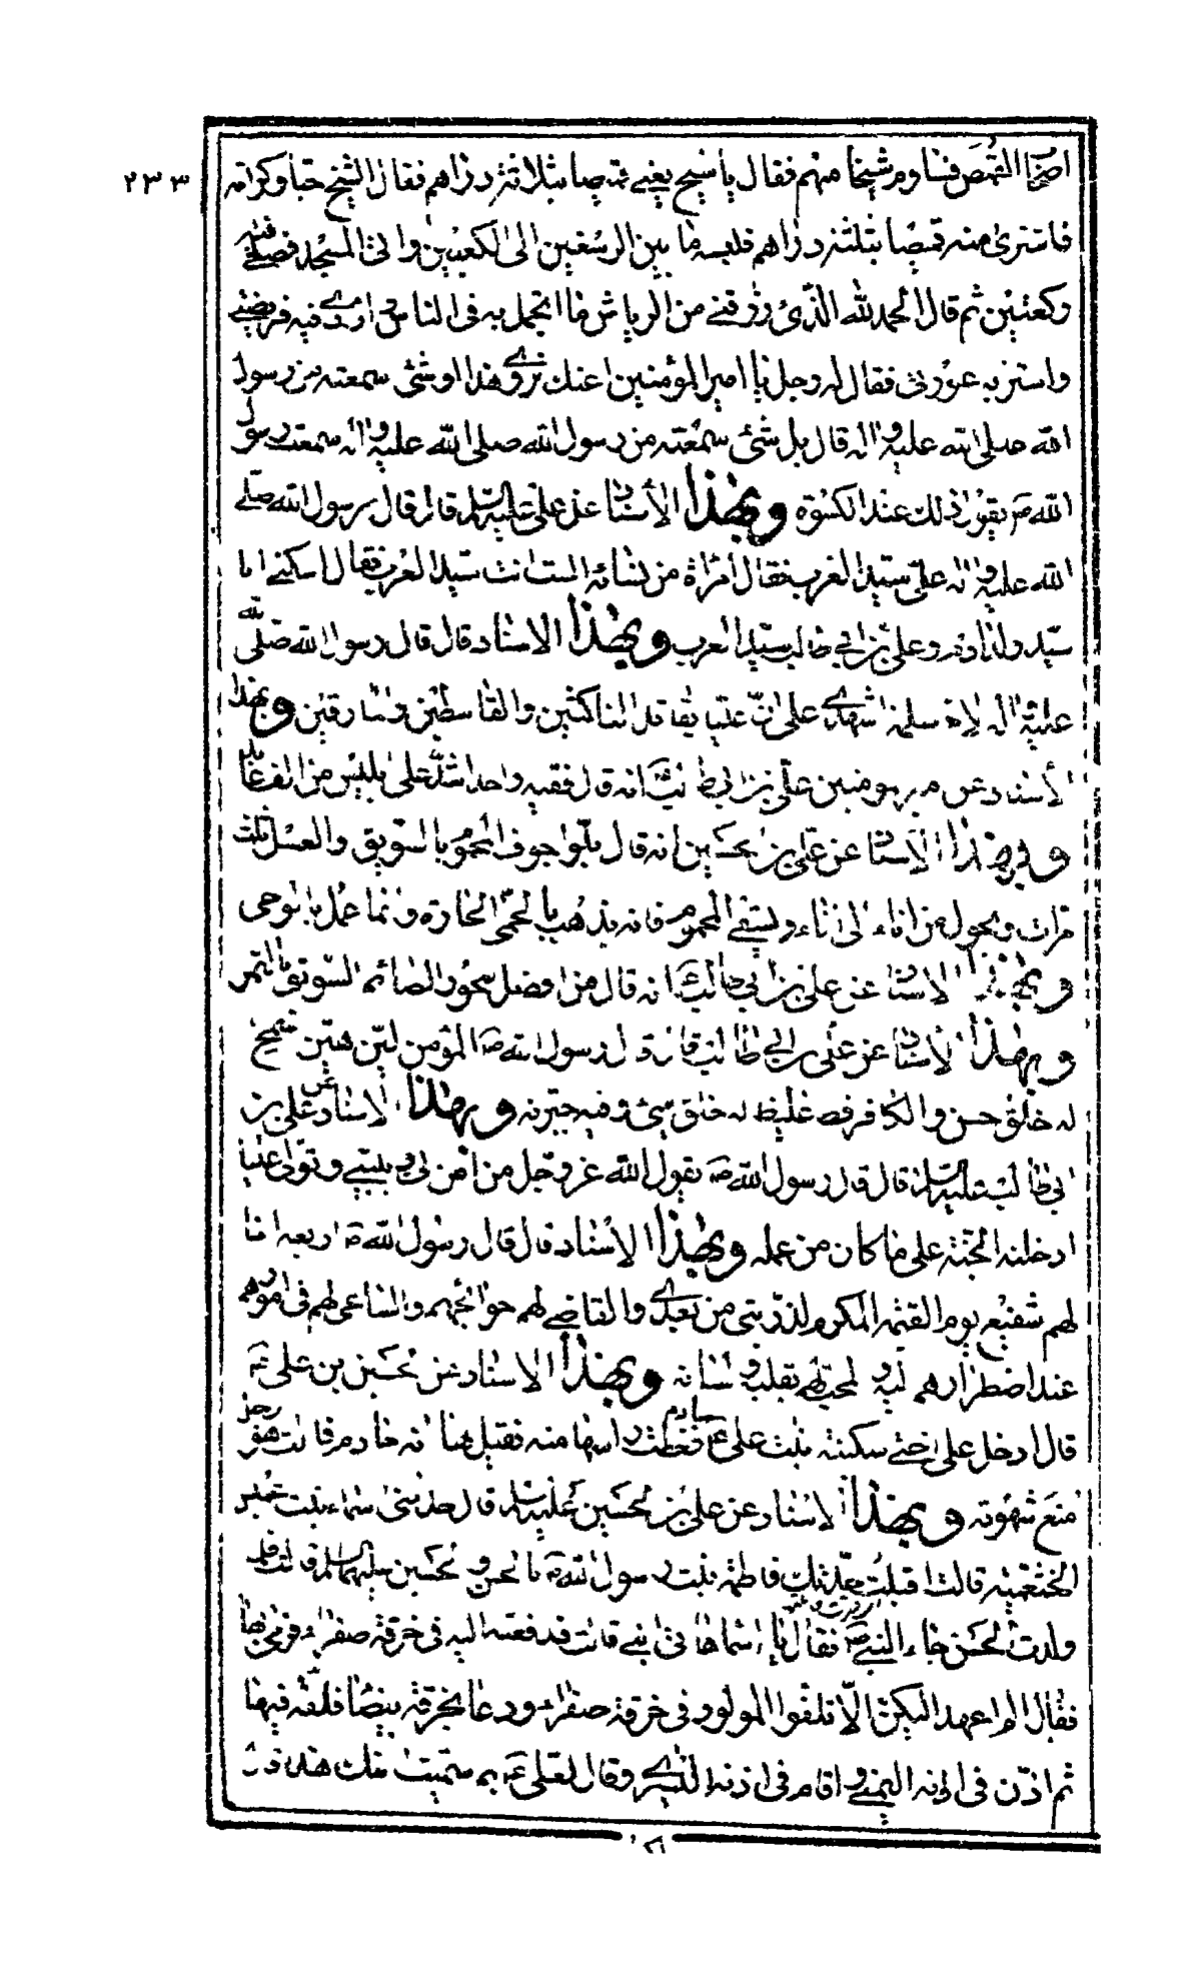 ٢٣٣
اصحاب القمص فساوم شيخا منهم فقال يا شيخ بعنى قميصا بثلاثة دراهم فقال الشيخ حبا وكرامة
فاشترى منه قميصا بثلثة دراهم فلبسه ما بين الرسغين الى الكعبين واتى المسجد فصلى فيه
ركعتين ثم قال الحمد لله الذى رزقنى من الرياش ما اتجمل به فى الناس اودى فيه فريضتى
واستر به عورتى فقال له رجل يا امير المؤمنين اعنك نروى هذا او شئ سمعته من رسول
الله صلى الله عليه واله قال بل شئ سمعته من رسول الله صلى الله عليه واله سمعت رسول
الله ص يقول ذلك عند الكسوة وبهذا الأسناد عن على عليه السلم قال قال رسول الله صلى
الله عليه واله على سيد العرب فقال امراة من نسائه الست انت سيد العرب فقال اسكتى انا
سيد ولد ادم وعلى بن ابي طالب سيد العرب وبهذا الاسناد قال قال رسول الله صلى الله
عليه واله لام سلمة اشهدى على ان عليا يقاتل الناكثين والقاسطين والمارقين وبهذا
الأسناد عن على بن ابى طالب انه قال فقيه واحد اشد على ابليس من الف عابد
وبهذا الاسناد عن على بن الحسين انه قال بلوا جوف المحموم بالسويق والعسل ثلث
مرات ويحول من اناء الى اناء ويسقى المحموم فانه يذهب بالحمى الحارة وانما عمل بالوحى
وبهذا الاسناد عن على بن ابي طالب انه قال من افضل سحور الصائم السويق بالتمر
وبهذا الأسناد عن على بن ابي طالب قال قال رسول الله ص المؤمن لين هين سمح
له خلق حسن والكافر فظ غليظ له خلق سئ وفيه جبرية وبهذا الاسناد عن على بن
ابي طالب عليه السلم قال قال رسول الله ص يقول الله عز وجل من امن بى وبنبيى وتولى عليا
ادخلته الجنة على ما كان من عمله وبهذا الاسناد قال قال رسول الله ص اربعة انا
لهم شفيع يوم القيمة المكرم لذريتى من بعدى والقاضى لهم حوائجهم والساعى لهم فى امورهم
عند اضطرارهم اليه والمحب لهم بقلبه ولسانه وبهذا الاسناد عن الحسين بن على ع
قال ادخل على اختى سكينة بنت على ع خادم فغطت راسها منه فقيل لها انه خادم قالت هو رجل
منع شهوته وبهذا الاسناد عن على بن الحسين عليه السلم قال حدثتنى اسماء بنت عميس
الخثعمية قالت اقبلت جدتك فاطمة بنت رسول الله ص بالحسن والحسين عليهما السلم قالت فلما
ولدت الحسن جاء النبى ص فقال يا اسماء هاتى ابنى قالت فدفعته اليه فى خرقة صفراء فرمى بها
فقال الم اعهد اليكن الا تلفوا المولود فى خرقة صفراء ودعا بخرقة بيضا فلفه فيها
ثم اذن فى اذنه اليمنى واقام فى اذنه اليسرى وقال لعلى ع بم سميت ابنك هذا